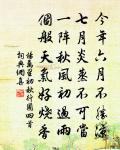 今年六月不勝涼
七月炎蒸不可當
一陣秋風初過雨
個般天氣好燒香
楊萬里初秋行圃四首
詞典網